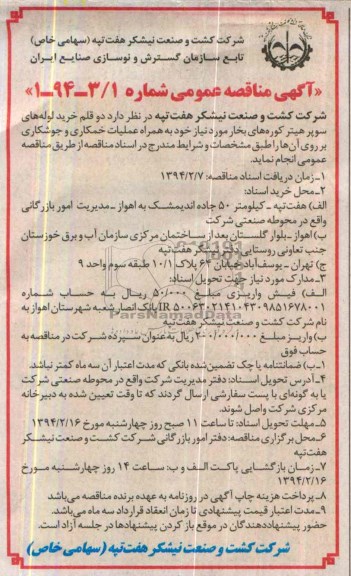 شرکت کشت و صنعت نیشکر هفت‌تپه (سهامی خاص)
تابع سازمان گسترش و نوسازی صنایع ایران
«آگهی مناقصه عمومی شماره ۳/۱-۹۴-۱»
شرکت کشت و صنعت نیشکر هفت‌تپه در نظر دارد دو قلم خرید لوله‌های
سوپر هیتر کوره‌های بخار مورد نیاز خود به همراه عملیات خمکاری و جوشکاری
بر روی آن‌ها را طبق مشخصات و شرایط مندرج در اسناد مناقصه از طریق مناقصه
عمومی انجام نماید.
۱-زمان دریافت اسناد مناقصه: ۱۳۹۴/۲/۷
۲-محل خرید اسناد:
الف) هفت‌تپه - کیلومتر ۵۰ جاده اندیمشک به اهواز -مدیریت امور بازرگانی
واقع در محوطه صنعتی شرکت
ب) اهواز -بلوار گلستان بعد از ساختمان مرکزی سازمان آب و برق خوزستان
جنب تعاونی روستایی دفتر نیشکر هفت‌تپه
ج) تهران - یوسف‌آباد خیابان ۶۴ پلاک ۱۰/۱ طبقه سوم واحد ۹
۳-مدارک مورد نیاز جهت تحویل اسناد:
الف) فیش واریزی مبلغ ۵۰۰/۰۰۰ ریال به حساب شماره
بانک انصار شعبه شهرستان اهواز به
نام شرکت کشت و صنعت نیشکر هفت‌تپه
ب) واریز مبلغ ۲۰۰/۰۰۰/۰۰۰ ریال به عنوان سپرده شرکت در مناقصه به
حساب فوق
ب-۱) ضمانتنامه یا چک تضمین‌شده بانکی که مدت اعتبار آن سه ماه کمتر نباشد.
۴-آدرس تحویل اسناد: دفتر مدیریت شرکت واقع در محوطه صنعتی شرکت
یا به گونه‌ای با پست سفارشی ارسال گردند که تا وقت تعیین شده به دبیرخانه
مرکزی شرکت واصل شوند.
۵-مهلت تحویل اسناد: تا ساعت ۱۱ صبح روز چهارشنبه مورخ ۱۳۹۴/۲/۱۶
۶-محل برگزاری مناقصه: دفتر امور بازرگانی شرکت کشت و صنعت نیشکر
هفت‌تپه
۷-زمان بازگشایی پاکت الف و ب: ساعت ۱۴ روز چهارشنبه مورخ
۱۳۹۴/۲/۱۶
۸-پرداخت هزینه چاپ آگهی در روزنامه به عهده برنده مناقصه می‌باشد.
۹-مدت اعتبار قیمت پیشنهادی تا زمان انعقاد قرارداد سه ماه می‌باشد.
حضور پیشنهاددهندگان در موقع باز کردن پیشنهادها در جلسه آزاد است.
شرکت کشت و صنعت نیشکر هفت‌تپه (سهامی خاص)